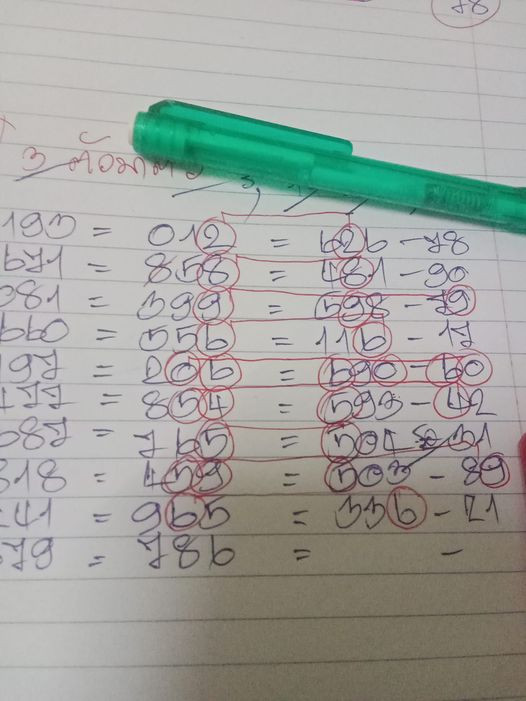 78
193 = 012 = 626 - 78
671 = 858 = 481 - 90
081 = 399 = 598 - 79
660 = 556 = 116 - 17
197 = 206 = 590 - 60
477 = 854 = 593 - 42
087 = 765 = 501
318 = 459 = 503 - 89
241 = 965 = 336 - 21
579 = 786 = -